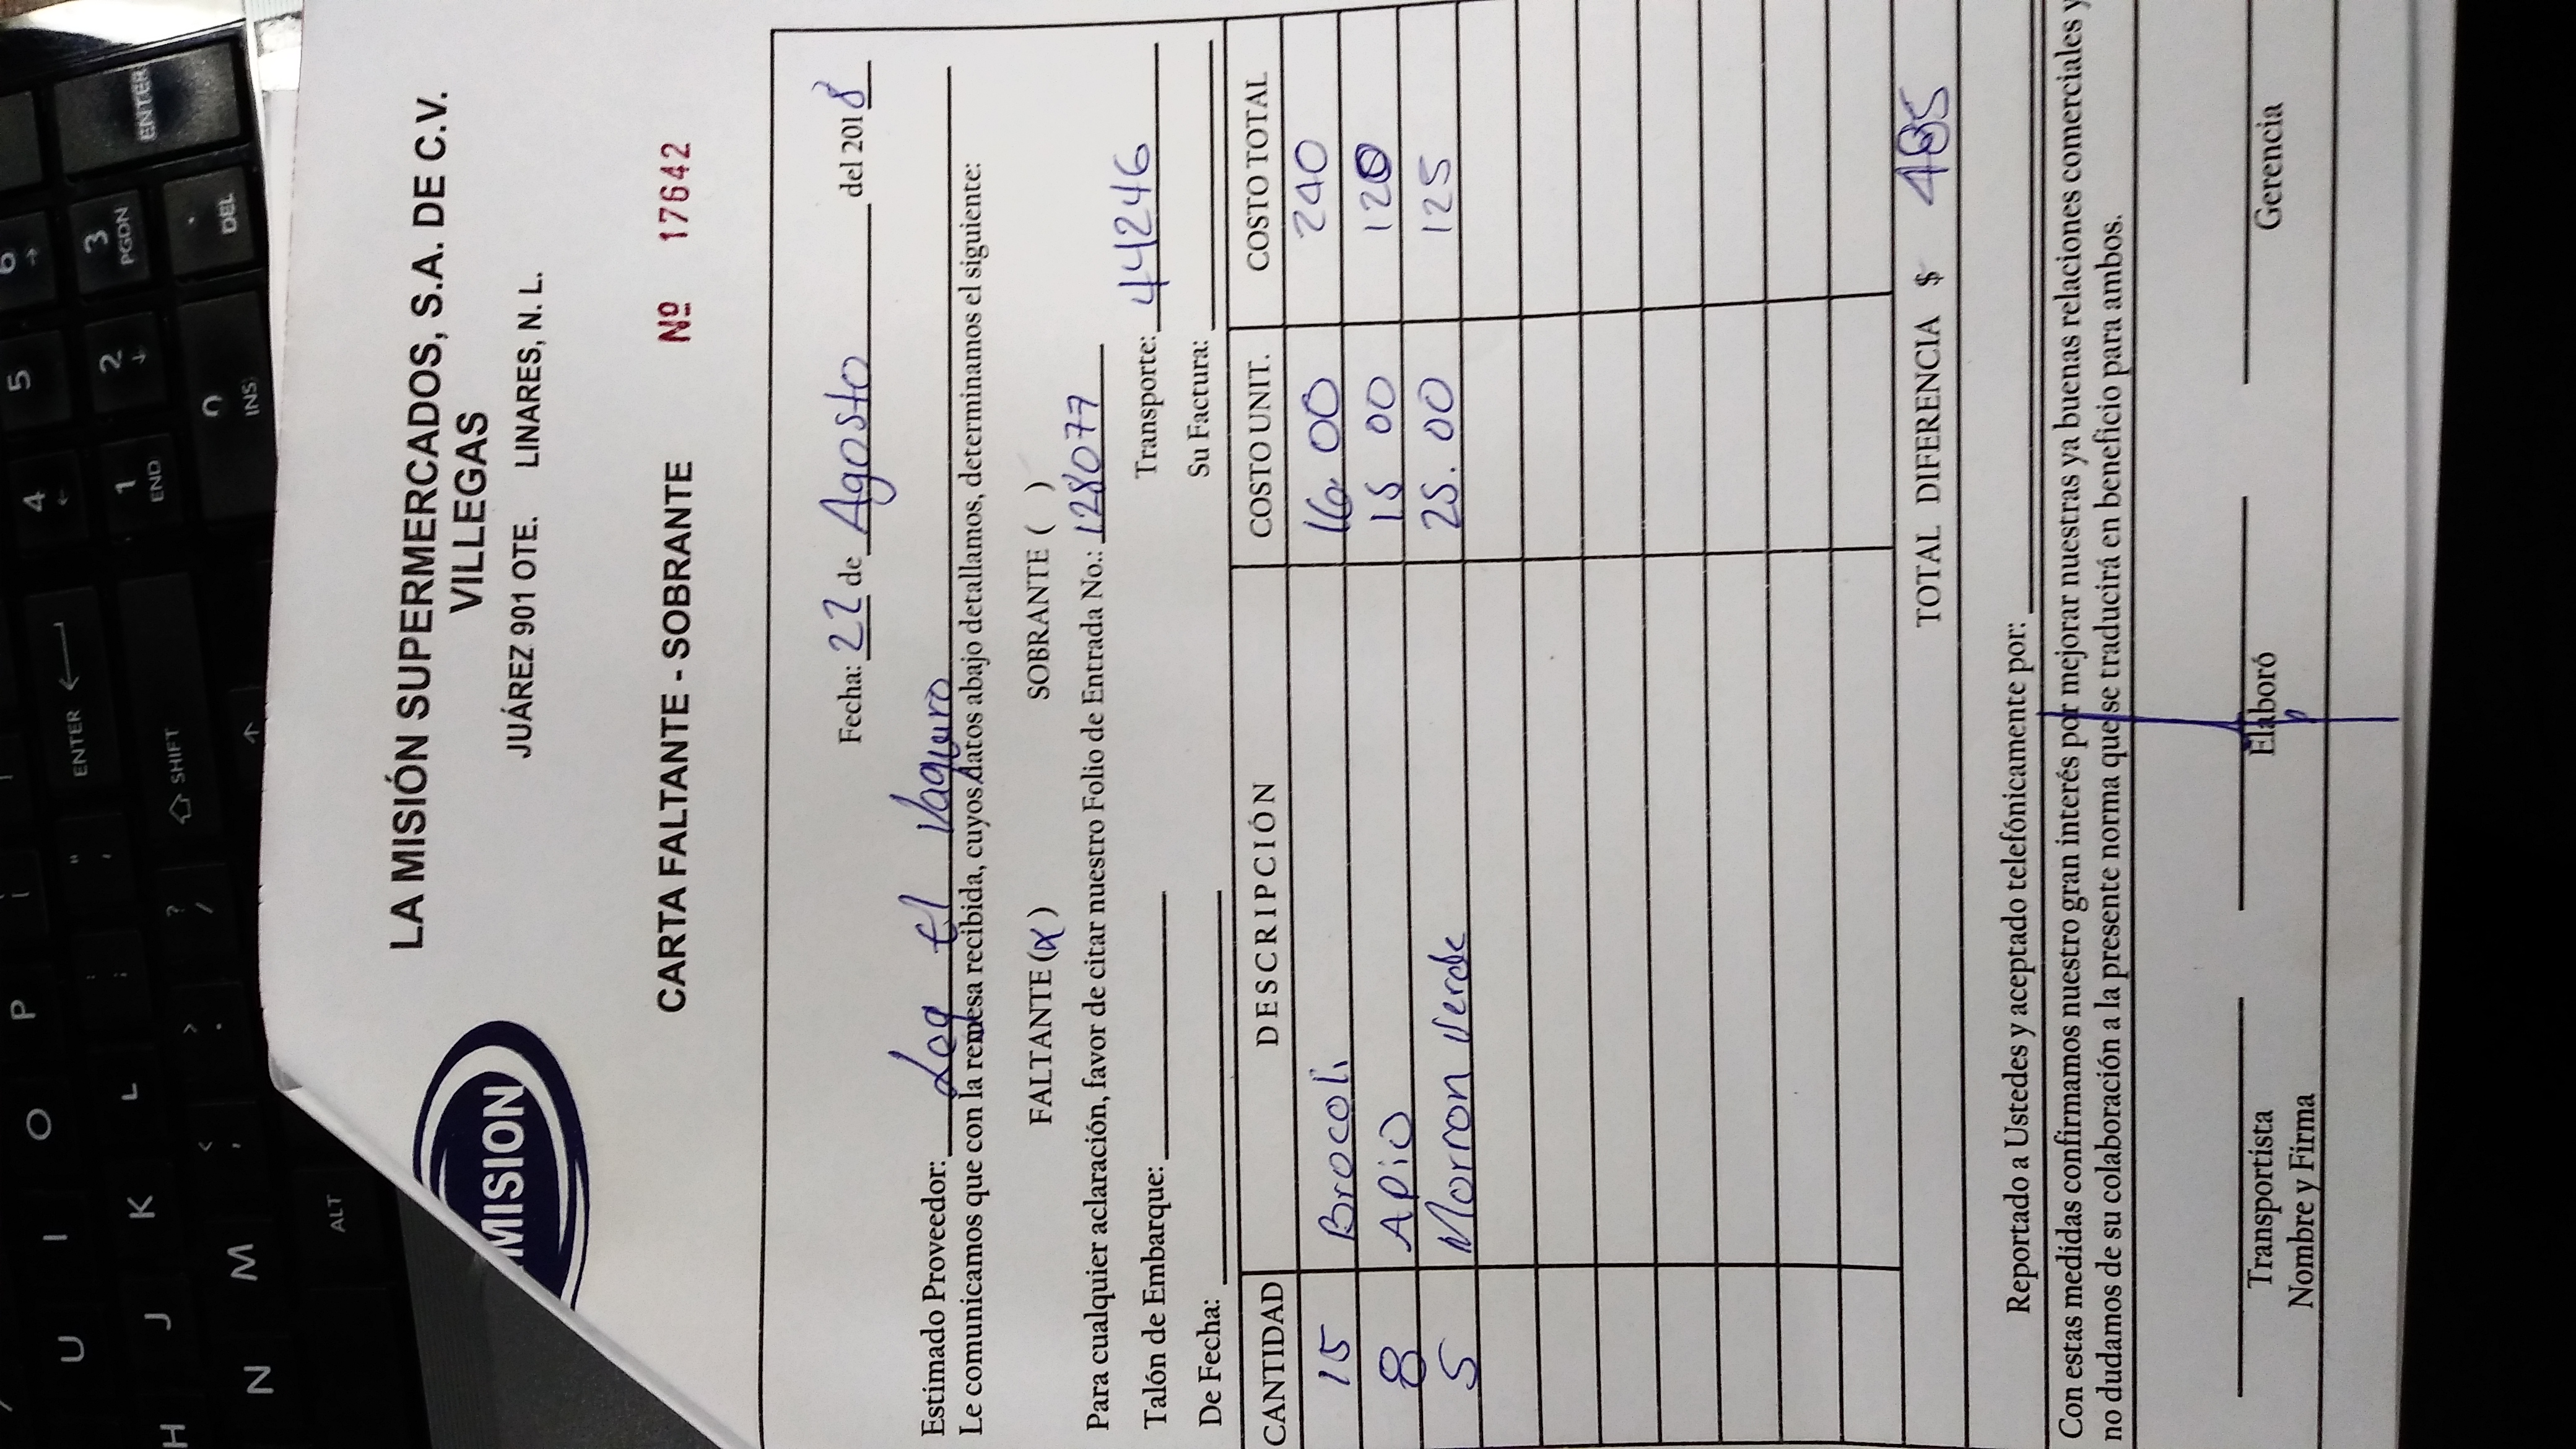 U I O P [ ] 4 5 6
H J K L : ; " ' ENTER 1 END 2 3 PGDN ENTER
N M < , > . ? / SHIFT 0 INS . DEL
ALT
MISION
LA MISIÓN SUPERMERCADOS, S.A. DE C.V.
VILLEGAS
JUÁREZ 901 OTE. LINARES, N. L.
CARTA FALTANTE - SOBRANTE Nº 17642
Fecha: 22 de Agosto del 2018
Estimado Proveedor: Log El Vaquero
Le comunicamos que con la remesa recibida, cuyos datos abajo detallamos, determinamos el siguiente:
FALTANTE (X) SOBRANTE ( )
Para cualquier aclaración, favor de citar nuestro Folio de Entrada No.: 128077
Talón de Embarque: Transporte: 44246
De Fecha: Su Factura:
CANTIDAD DESCRIPCIÓN COSTO UNIT. COSTO TOTAL
15 Brocoli 16.00 240
8 Apio 15 00 120
5 Morron Verde 25.00 125
TOTAL DIFERENCIA $ 485
Reportado a Ustedes y aceptado telefónicamente por:
Con estas medidas confirmamos nuestro gran interés por mejorar nuestras ya buenas relaciones comerciales y
no dudamos de su colaboración a la presente norma que se traducirá en beneficio para ambos.
Transportista Elaboró Gerencia
Nombre y Firma